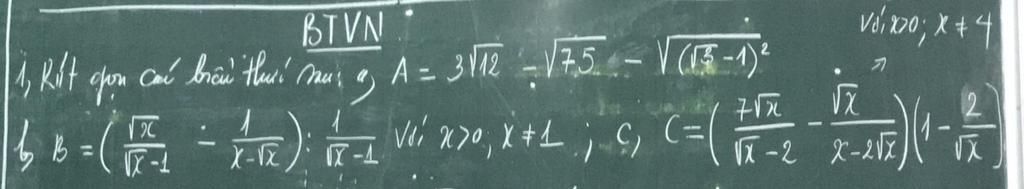 BTVN
Với x>0; x ≠ 4
1, Rút gọn các biểu thức sau: a, A = 3√12 - √75 - √(√3 - 1)²
b, B = (√x/(√x - 1) - 1/(x - √x)) : 1/(√x - 1) Với x>0; x ≠ 1 ; C, C = (7√x/(√x - 2) - √x/(x - 2√x))(1 - 2/√x)